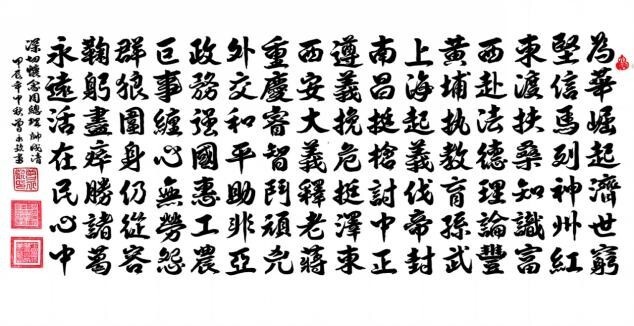 為華崛起濟世窮
堅信馬列神州紅
東渡扶桑知識富
西赴法德理論豐
黃埔執教育孫武
上海起義伐帝封
南昌挺槍討中正
遵義挽危挺澤東
西安大義釋老蔣
重慶睿智鬥頑兇
外交和平助非亞
政務強國惠工農
巨事纏心無勞怨
群狼圍身仍從容
鞠躬盡瘁勝諸葛
永遠活在民心中
深切懷念周總理
甲辰年中秋曾永